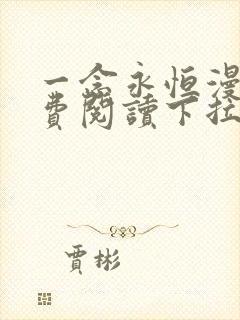 一念永恒漫
費閱讀下拉
賈彬